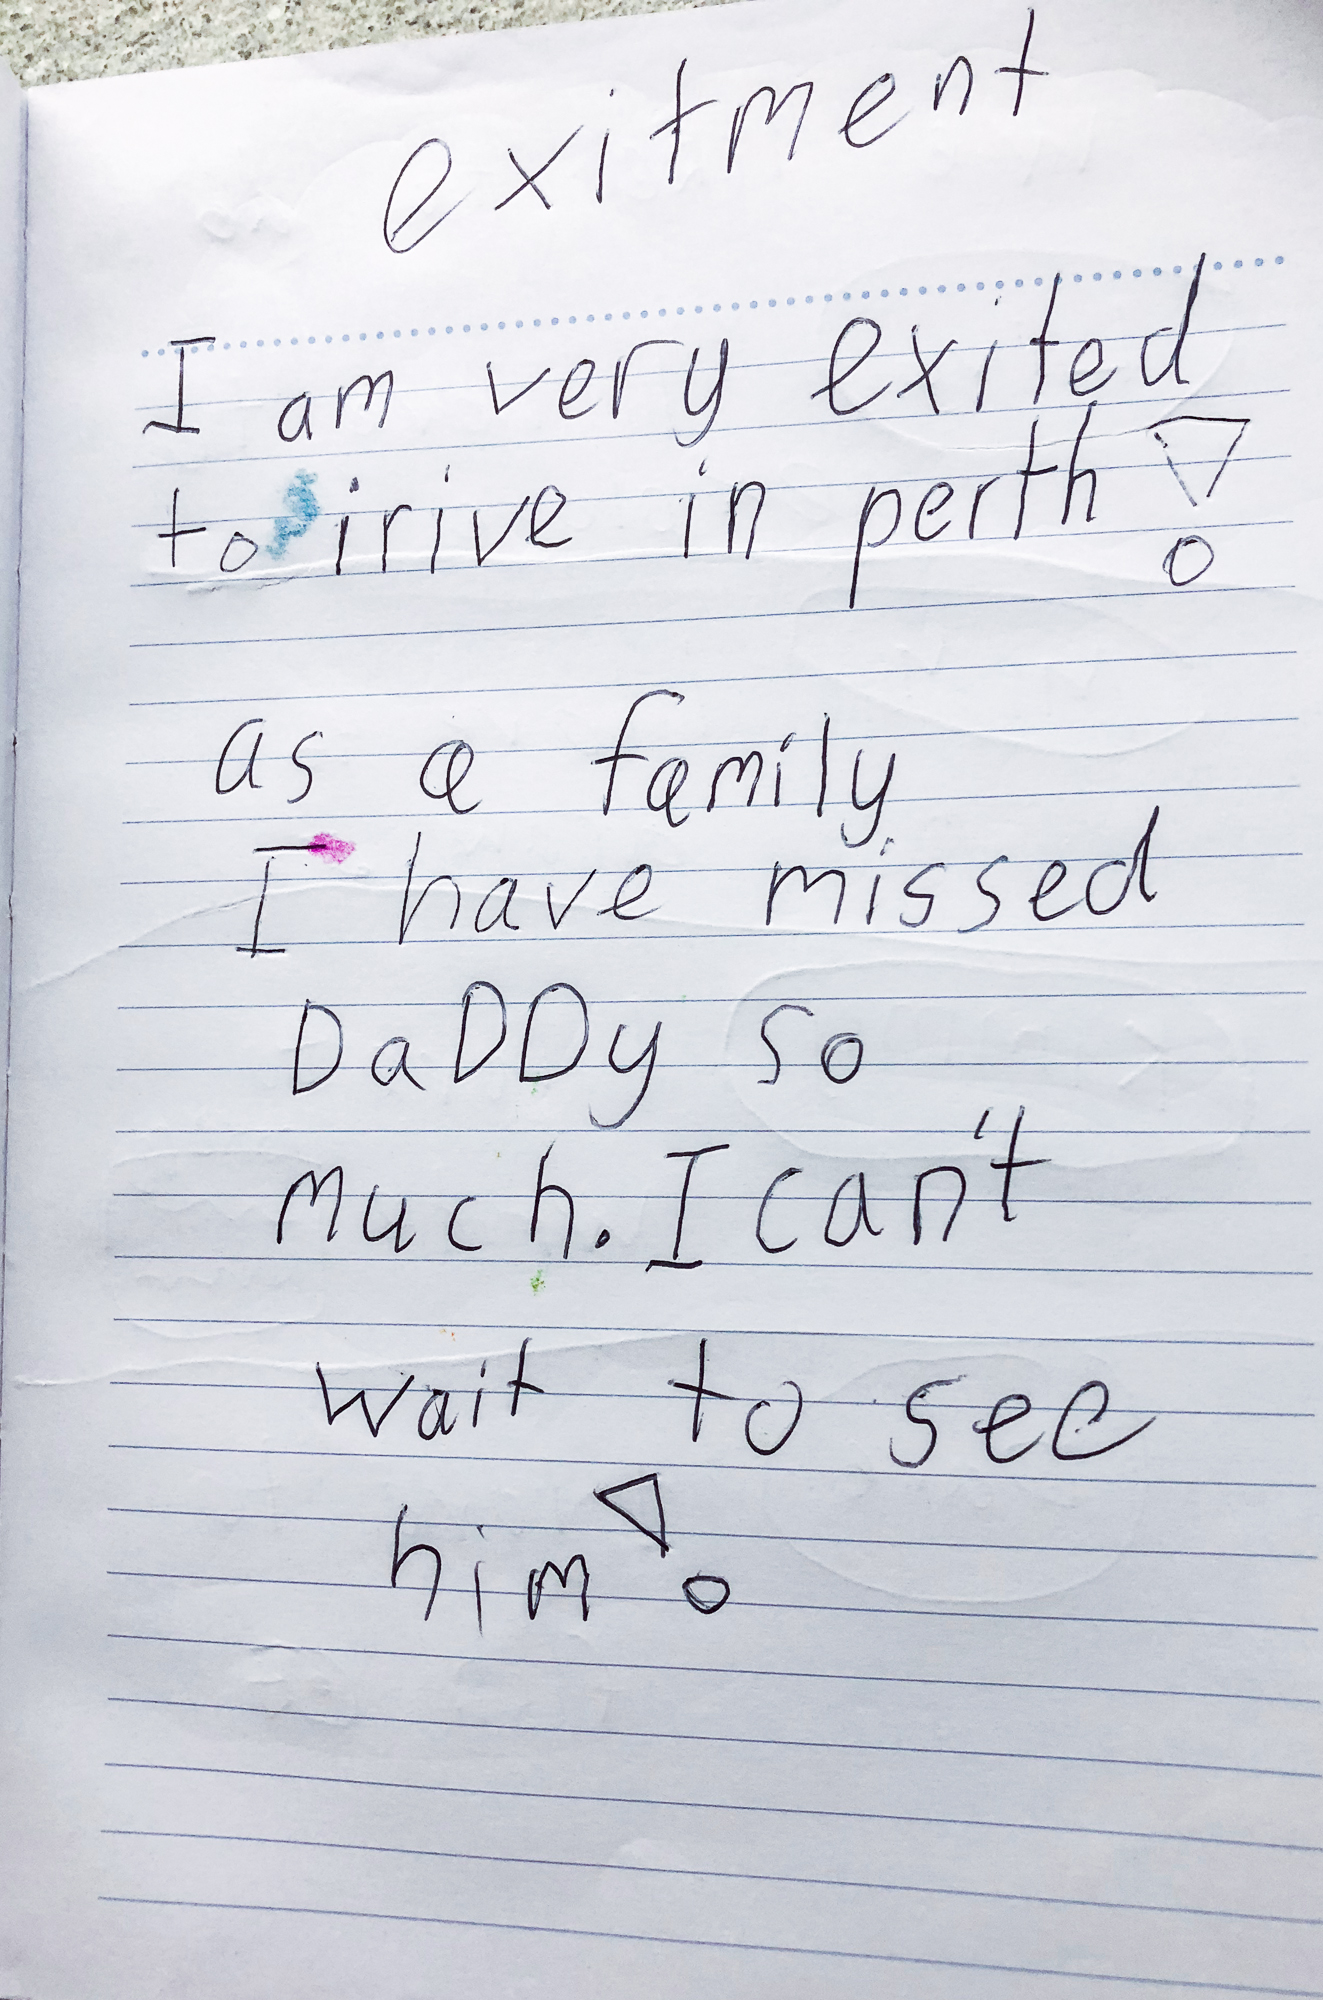 exitment
I am very exited
to irive in perth!
as a family
I have missed
DaDDy so
much. I can't
wait to see
him!